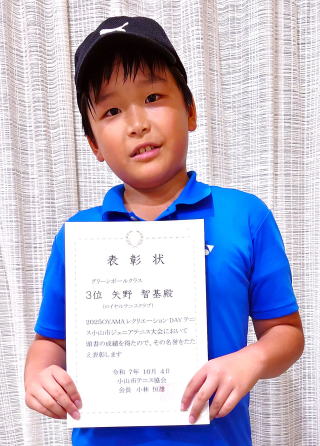 表彰状
グリーンボールクラス
3位 矢野 智基殿
(ロイヤルテニスクラブ)
2025OYAMAレクリエーションDAYテニ
ス小山市ジュニアテニス大会において
頭書の成績を得たので、その名誉をたた
え表彰します
令和 7年 10月 4日
小山市テニス協会
会長 小林 恒雄